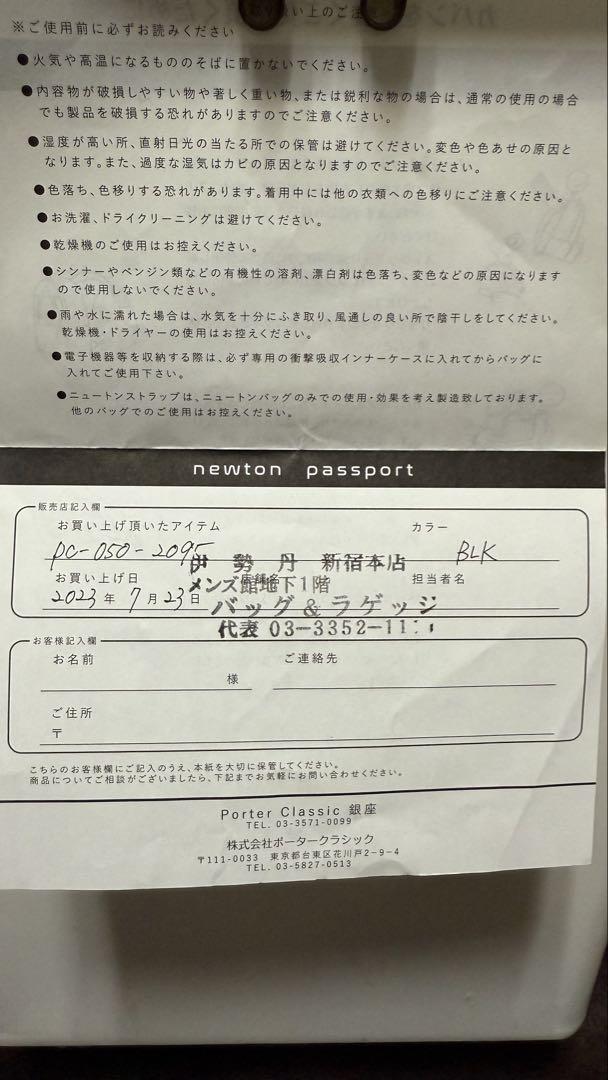 ※ご使用前に必ずお読みください
●火気や高温になるもののそばに置かないでください。
●内容物が破損しやすい物や著しく重い物、または鋭利な物の場合は、通常の使用の場合
でも製品を破損する恐れがありますのでご注意ください。
●湿度が高い所、直射日光の当たる所での保管は避けてください。変色や色あせの原因と
なります。また、過度な湿気はカビの原因となりますのでご注意ください。
●色落ち、色移りする恐れがあります。着用中には他の衣類への色移りにご注意ください。
●お洗濯、ドライクリーニングは避けてください。
●乾燥機のご使用はお控えください。
●シンナーやベンジン類などの有機性の溶剤、漂白剤は色落ち、変色などの原因になります
ので使用しないでください。
●雨や水に濡れた場合は、水気を十分にふき取り、風通しの良い所で陰干しをしてください。
乾燥機・ドライヤーの使用はお控えください。
●電子機器等を収納する際は、必ず専用の衝撃吸収インナーケースに入れてからバッグに
入れてご使用下さい。
●ニュートンストラップは、ニュートンバッグのみでの使用・効果を考え製造致しております。
他のバッグでのご使用はお控えください。
newton passport
販売店記入欄
お買い上げ頂いたアイテム カラー
PC-050-2095 BLK
伊勢丹 新宿本店
お買い上げ日 店舗名 担当者名
メンズ館地下1階
2023年 7月 23日
バッグ&ラゲッジ
代表 03-3352-111
お客様記入欄
お名前 ご連絡先
様
ご住所
〒
こちらのお客様欄にご記入のうえ、本紙を大切に保管してください。
商品についてご相談がございましたら、下記までお気軽にお問い合わせください。
Porter Classic 銀座
TEL. 03-3571-0099
株式会社ポータークラシック
〒111-0033 東京都台東区花川戸2-9-4
TEL. 03-5827-0513